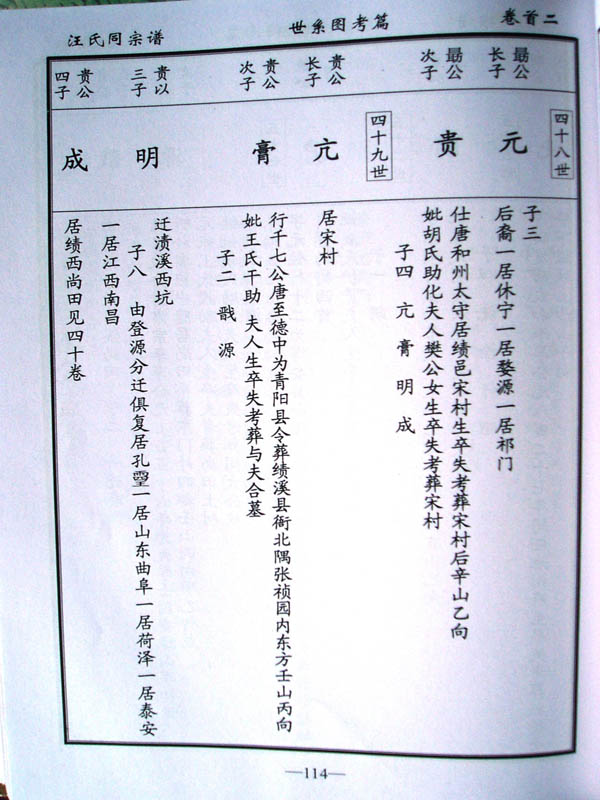 卷首二
世系图考篇
汪氏同宗谱
四十八世
勗公
长子
元
子三
后裔一居休宁一居婺源一居祁门
勗公
次子
贵
仕唐和州太守居绩邑宋村生卒失考葬宋村后辛山乙向
妣胡氏助化夫人樊公女生卒失考葬宋村
子四 亢 膏 明 成
四十九世
贵公
长子
亢
居宋村
贵公
次子
膏
行千七公唐至德中为青阳县令葬绩溪县衙北隅张祯园内东方壬山丙向
妣王氏干助 夫人生卒失考葬与夫合墓
子二 戬 源
贵以
三子
明
迁渍溪西坑
子八 由登源分迁俱复居孔 一居山东曲阜一居荷泽一居泰安
一居江西南昌
贵公
四子
成
居绩西尚田见四十卷
—114—